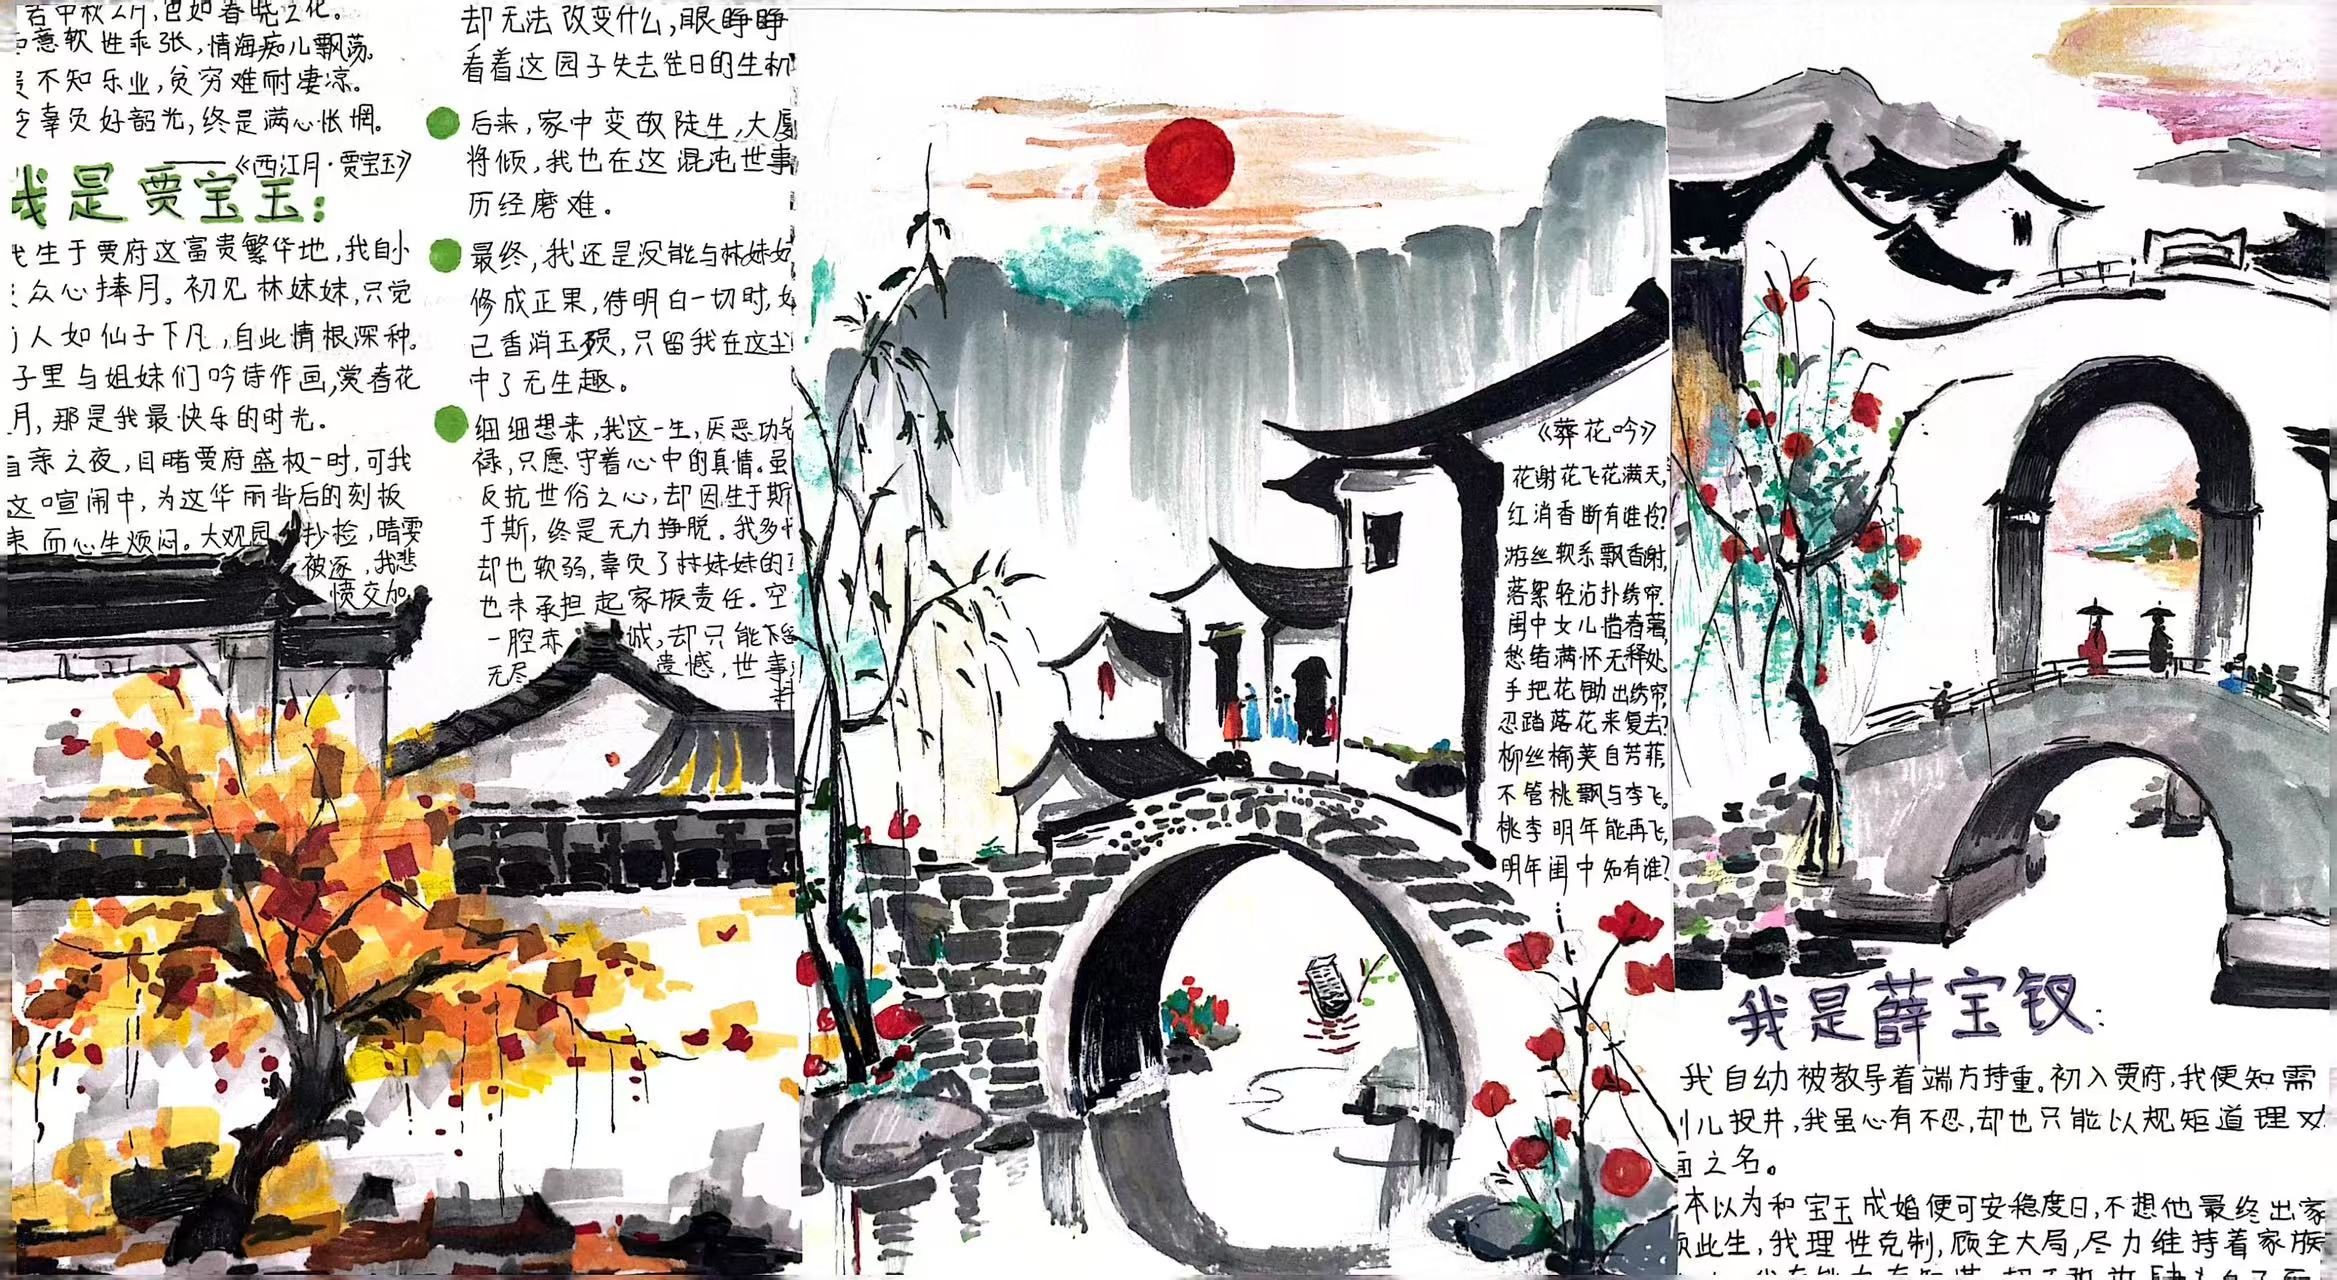 若中秋之月,色如春晓之花。
意软性乖张,情海痴儿飘荡。
不知乐业,贫穷难耐凄凉。
辜负好韶光,终是满心怅惘。
——《西江月·贾宝玉》
我是贾宝玉:
我生于贾府这富贵繁华地,我自小
众心捧月。初见林妹妹,只觉
人如仙子下凡,自此情根深种。
子里与姐妹们吟诗作画,赏春花
月,那是我最快乐的时光。
亲之夜,目睹贾府盛极一时,可我
这喧闹中,为这华丽背后的刻板
而心生烦闷。大观园抄检,晴雯
被逐,我悲
愤交加
却无法改变什么,眼睁睁
看着这园子失去往日的生机
后来,家中变故陡生,大厦
将倾,我也在这混沌世事
历经磨难。
最终,我还是没能与林妹妹
修成正果,待明白一切时,
已香消玉殒,只留我在这尘
中了无生趣。
细细想来,我这一生,厌恶功名
禄,只愿守着心中的真情。虽
反抗世俗之心,却因生于斯
于斯,终是无力挣脱。我多
却也软弱,辜负了林妹妹的
也未承担起家族责任。空
一腔赤诚,却只能
无尽遗憾,世事
《葬花吟》
花谢花飞花满天,
红消香断有谁怜?
游丝软系飘香榭,
落絮轻沾扑绣帘。
闺中女儿惜春暮,
愁绪满怀无释处,
手把花锄出绣帘,
忍踏落花来复去?
柳丝榆荚自芳菲,
不管桃飘与李飞。
桃李明年能再飞,
明年闺中知有谁?
我是薛宝钗:
我自幼被教导着端方持重。初入贾府,我便知需
儿投井,我虽心有不忍,却也只能以规矩道理
面之名。
本以为和宝玉成婚便可安稳度日,不想他最终出家
此生,我理性克制,顾全大局,尽力维持着家族